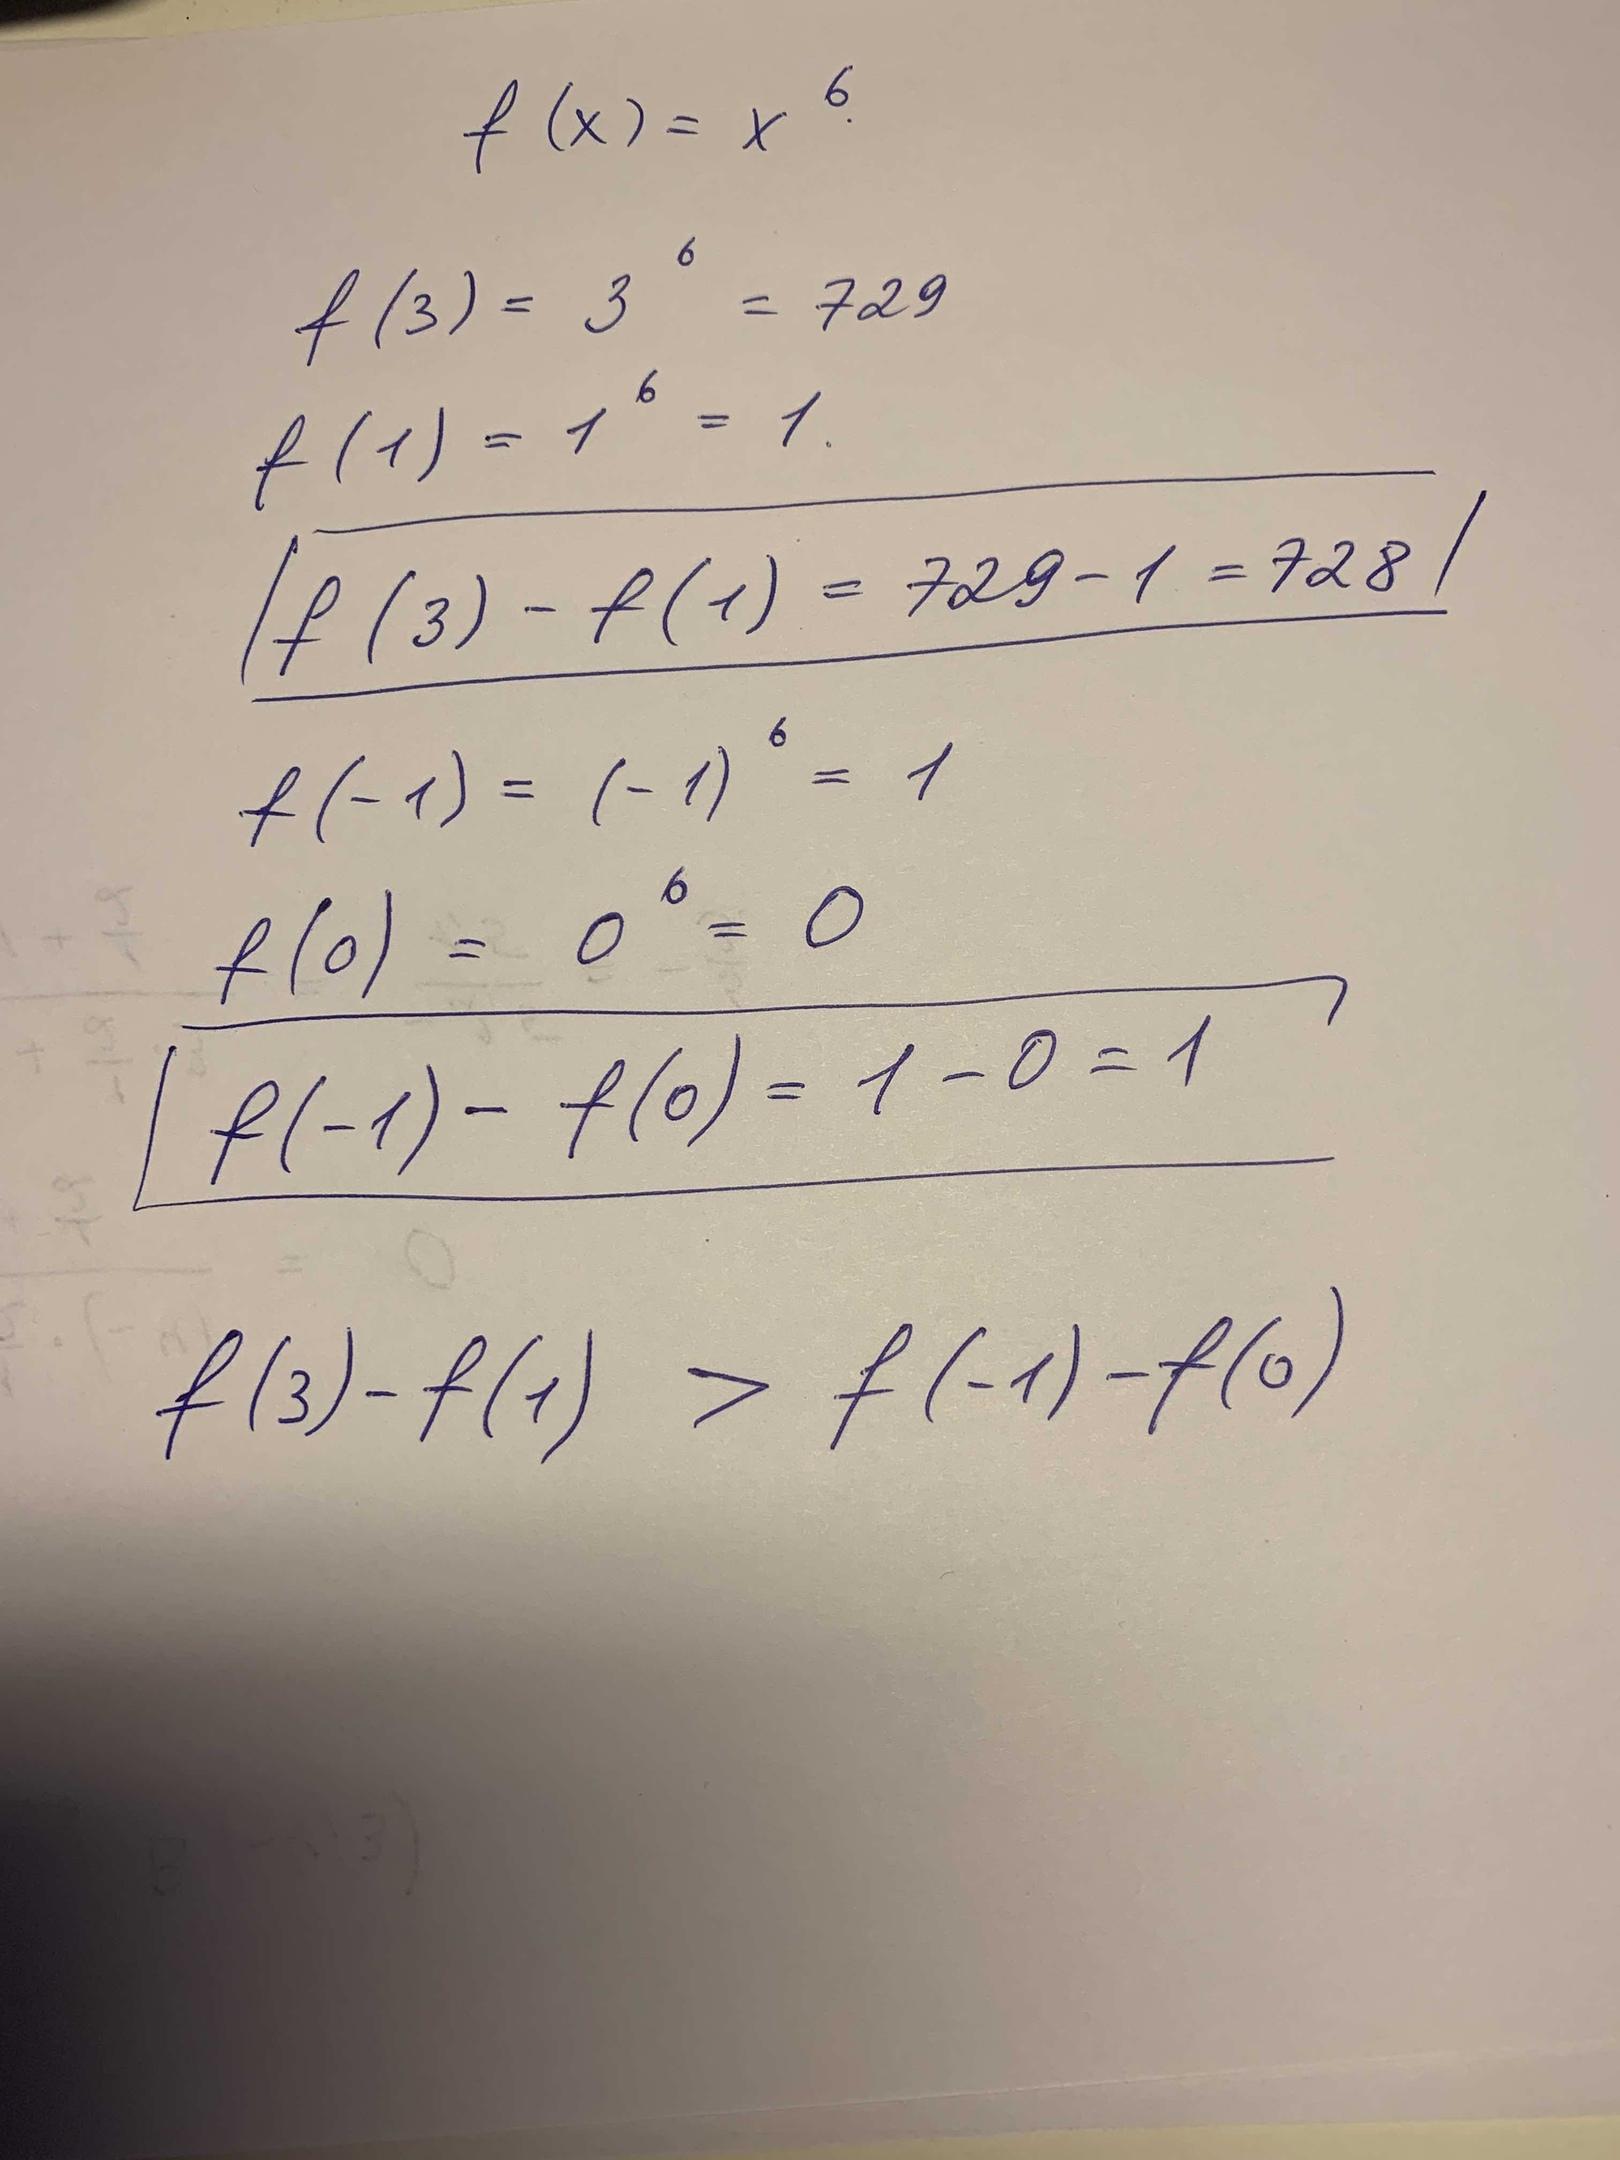 f(x) = x⁶.
f(3) = 3⁶ = 729
f(1) = 1⁶ = 1.
f(3) - f(1) = 729 - 1 = 728
f(-1) = (-1)⁶ = 1
f(0) = 0⁶ = 0
f(-1) - f(0) = 1 - 0 = 1
f(3) - f(1) > f(-1) - f(0)